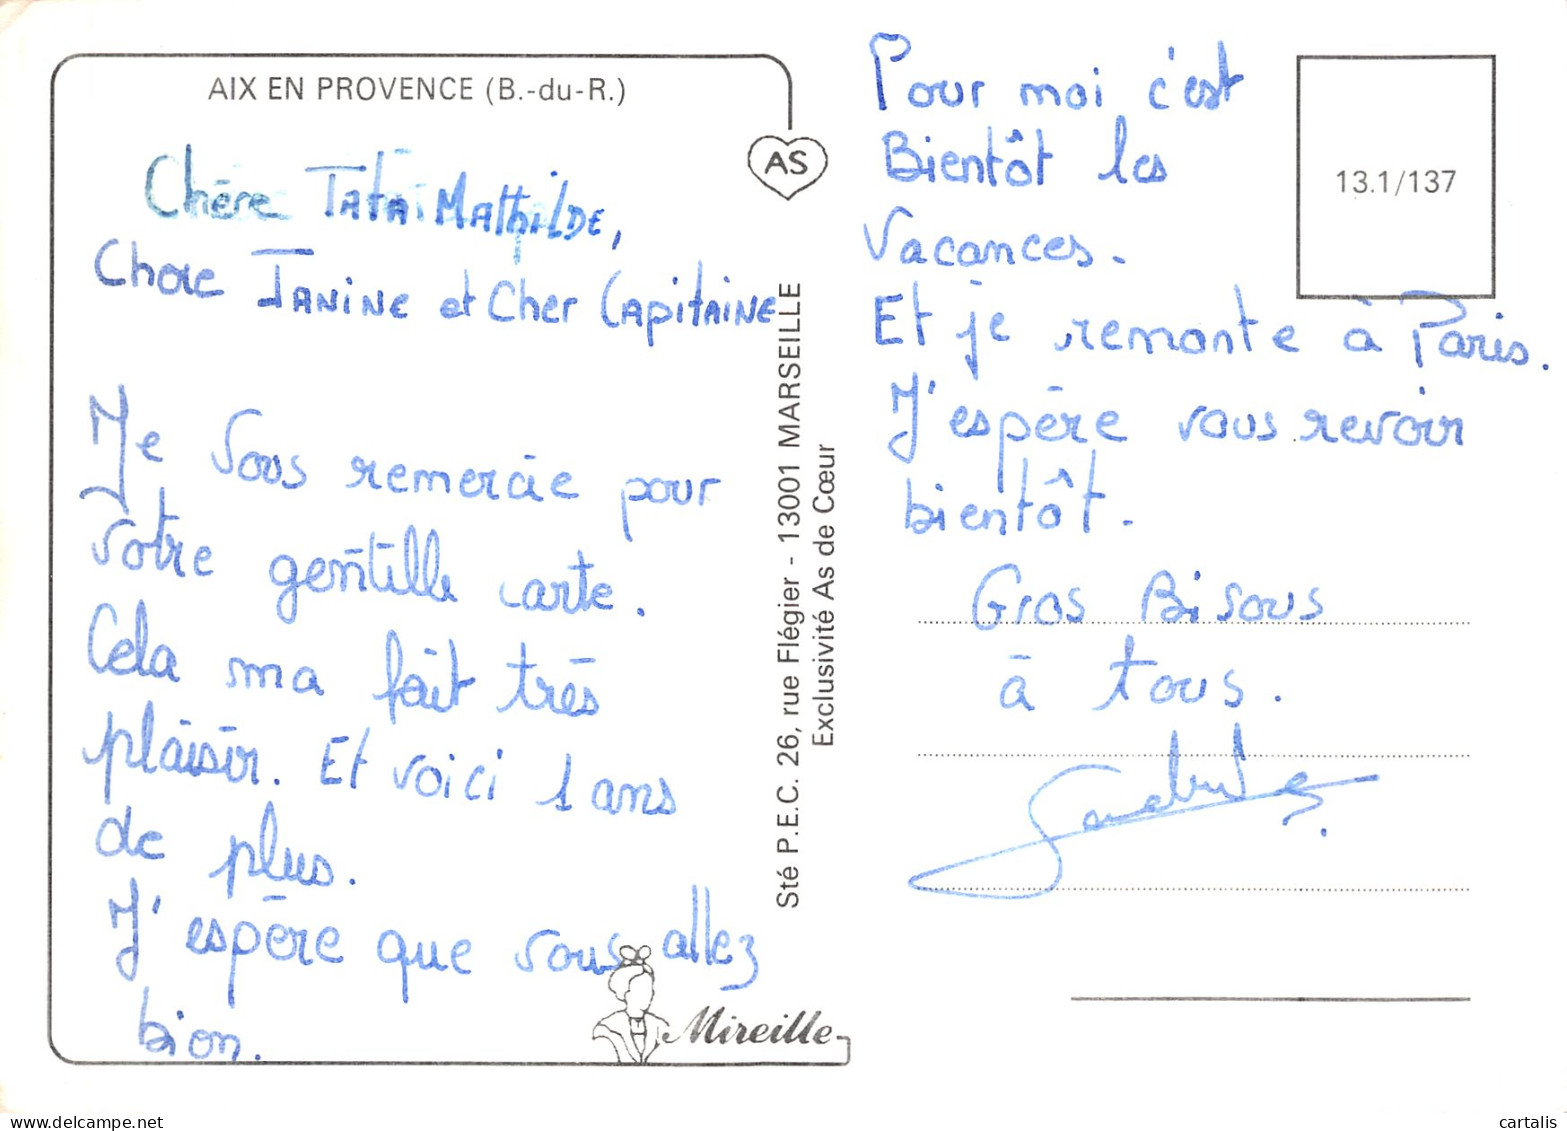 AIX EN PROVENCE (B.-du-R.)
Chère Tata Mathilde,
Chère Janine et Cher Capitaine
Je vous remercie pour
votre gentille carte.
Cela ma fait très
plaisir. Et voici 1 ans
de plus.
J'espère que vous allez
bien.
Mireille
AS
Sté P.E.C. 26, rue Flégier - 13001 MARSEILLE
Exclusivité As de Cœur
Pour moi c'est
Bientôt les
vacances.
Et je remonte à Paris.
J'espère vous revoir
bientôt.
Gros Bisous
à tous.
13.1/137
www.delcampe.net
cartalis